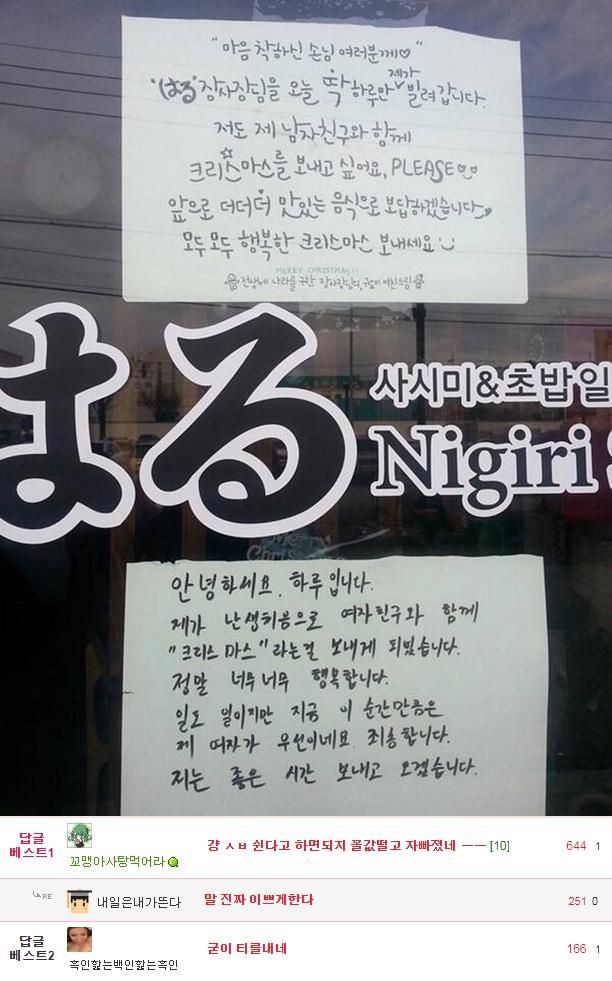 "마음 착하신 손님 여러분께♡"
'はる' 장사장님을 오늘 딱 하루만 제가 빌려갑니다.
저도 제 남자친구와 함께
크리스마스를 보내고 싶어요, PLEASE
앞으로 더더더 맛있는 음식으로 보답하겠습니다
모두모두 행복한 크리스마스 보내세요
MERRY CHRISTMAS!!
전생에 나라를 구한 장사장님의, 여친드림
はる
사시미&초밥일
Nigiri
Merry
Christmas
안녕하세요. 하루입니다.
제가 난생처음으로 여자친구와 함께
"크리스마스"라는걸 보내게 되었습니다.
정말 너무너무 행복합니다.
일도 일이지만 지금 이 순간만큼은
제 여자가 우선이네요. 죄송합니다.
저는 좋은 시간 보내고 오겠습니다.
답글
베스트1
꼬맹아사탕먹어라
걍 ㅅㅂ 쉰다고 하면되지 꼴값떨고 자빠졌네 ㅡㅡ [10]
644 1
RE
내일은내가뜬다
말 진짜 이쁘게한다
251 0
답글
베스트2
흑인핥는백인핥는흑인
굳이 티를내네
166 1